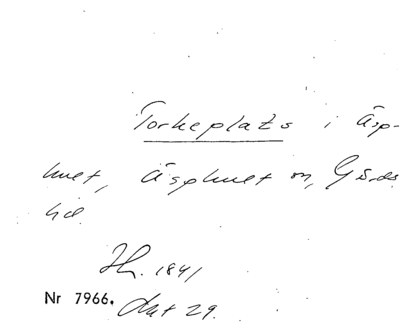 Torkeplats i Äsp-
huet, Äsphuet m, Gärds
hd.
Hh. 1841
Nr 7966. Akt 29.